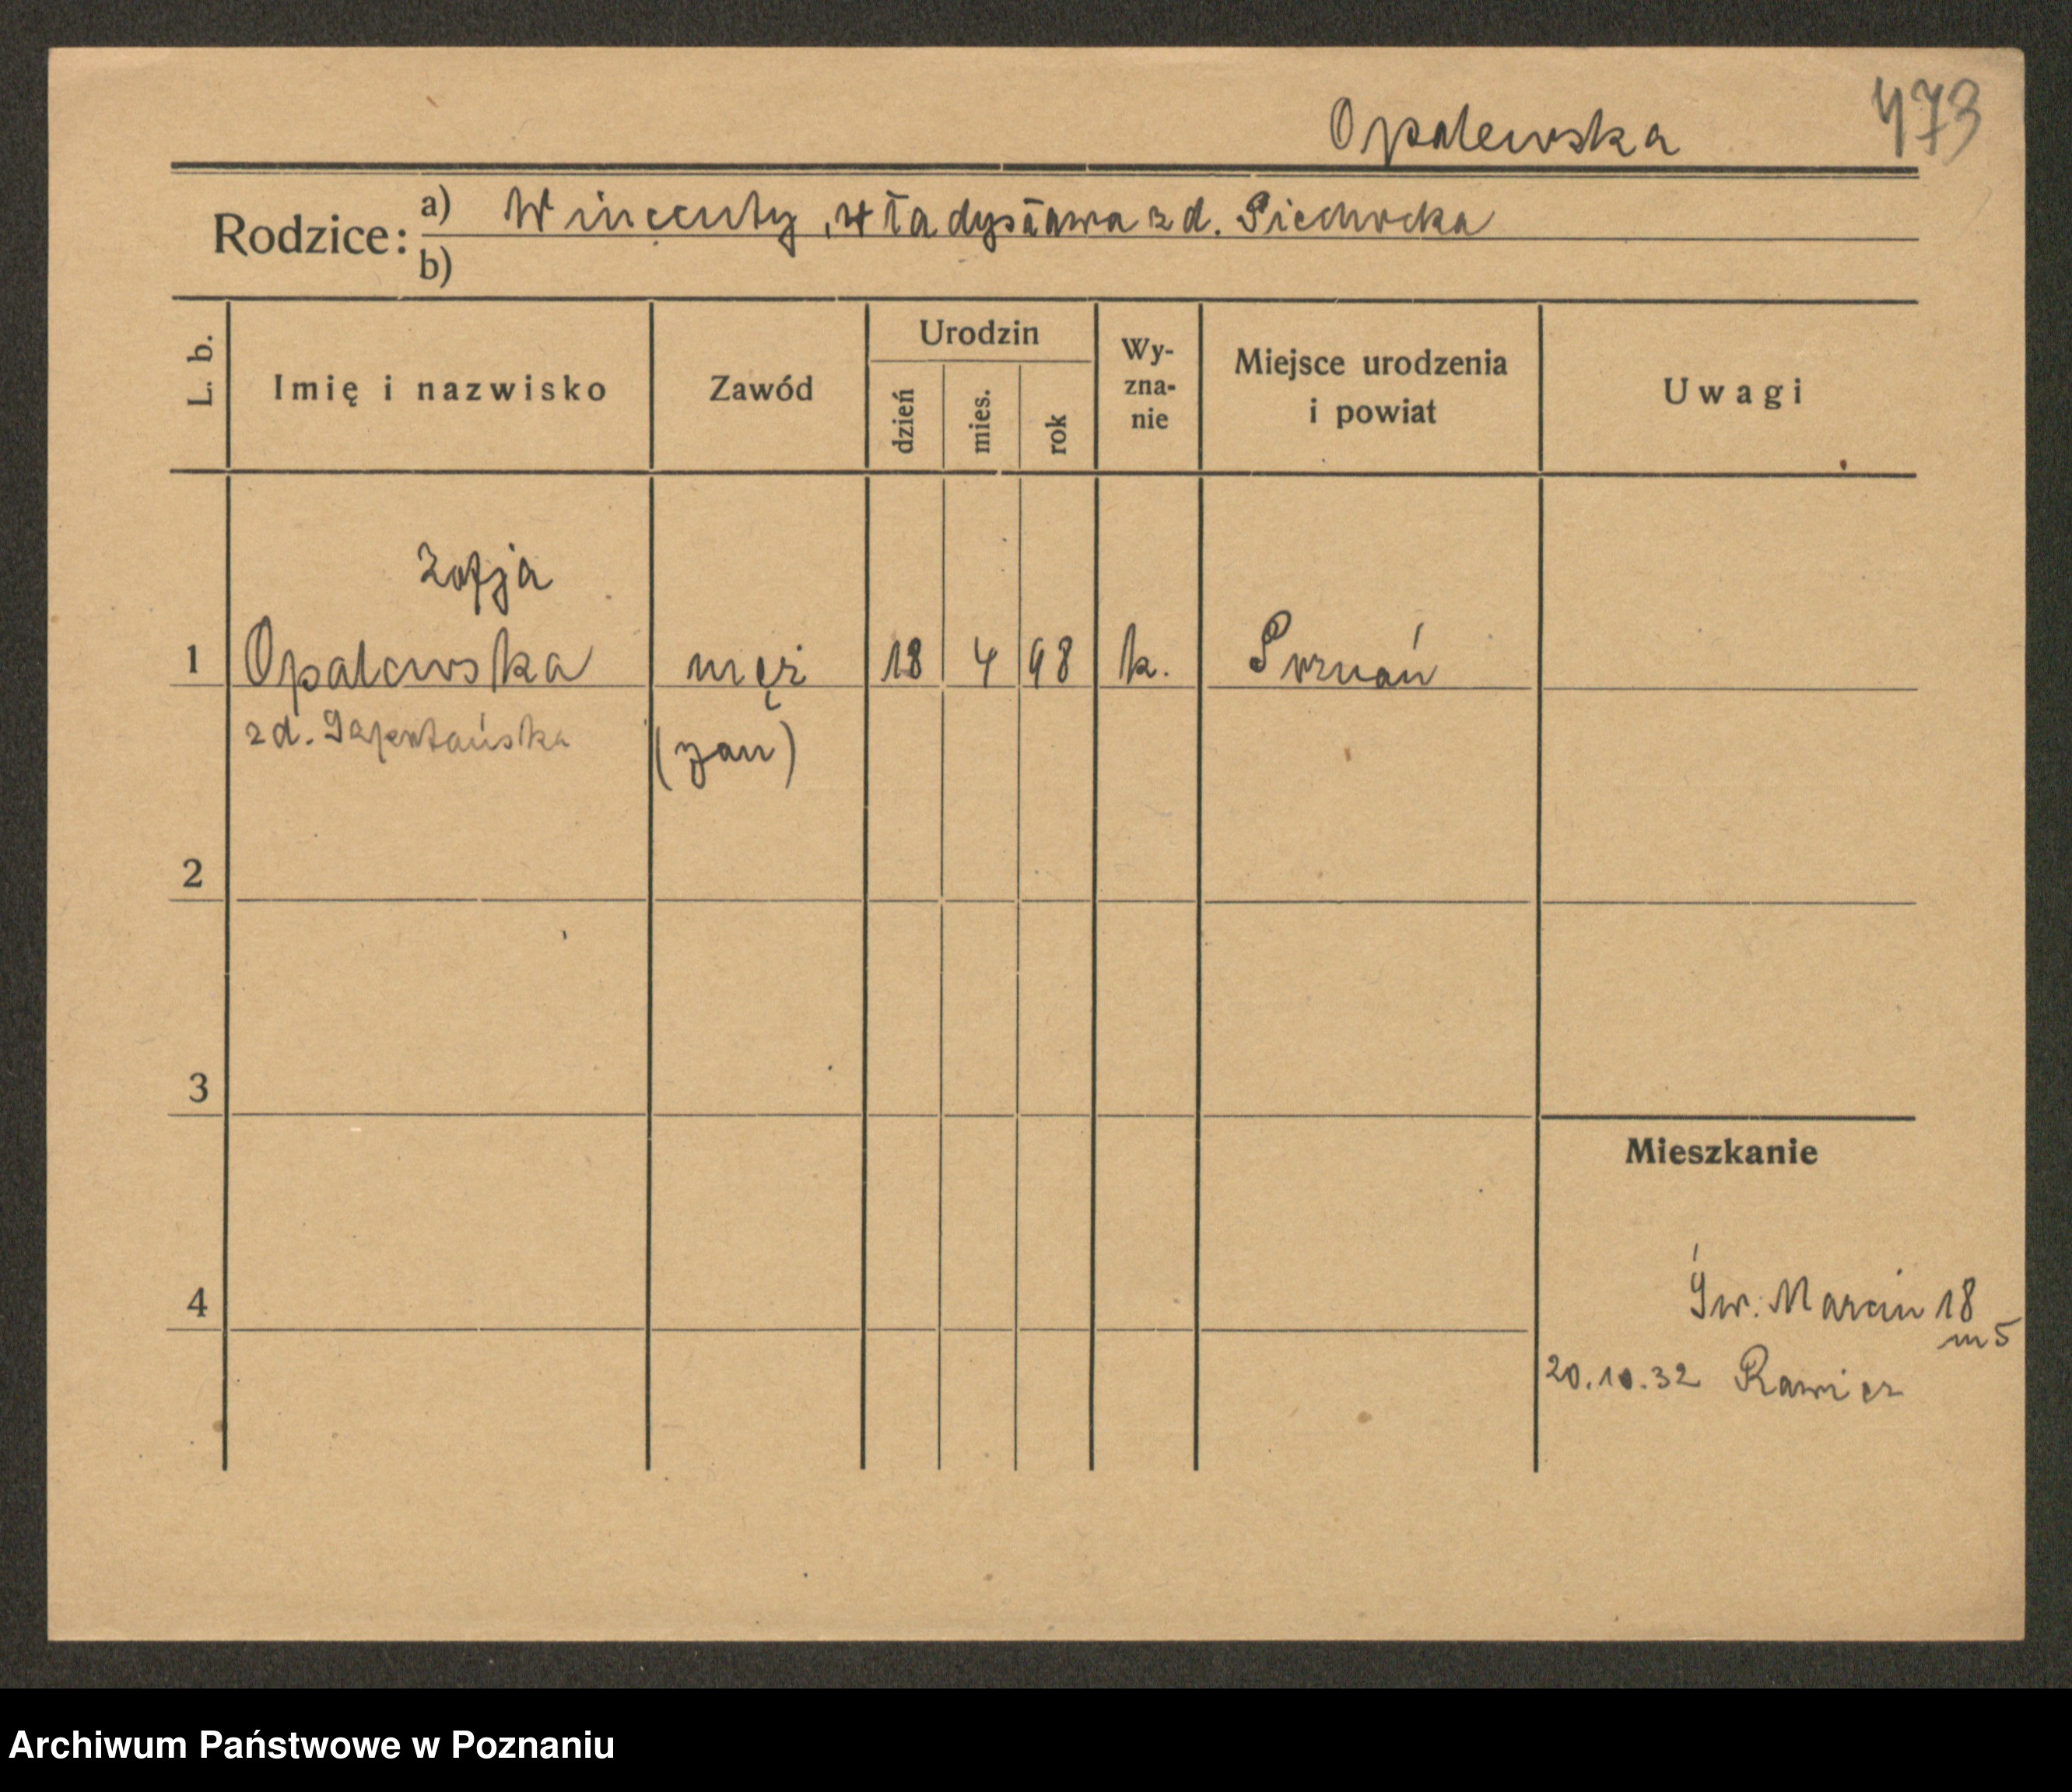 Opalewska 473
Rodzice: a) Wincenty, Władysława z d. Piechocka
b)
L. b. Imię i nazwisko Zawód Urodzin dzień mies. rok Wyzna-nie Miejsce urodzenia i powiat Uwagi
Zofja
1 Opalewska męż 18 4 98 k. Poznań
z d. (jan)
2
3
Mieszkanie
4 Św. Marcin 18
m 5
20.10.32 Rawicz
Archiwum Państwowe w Poznaniu